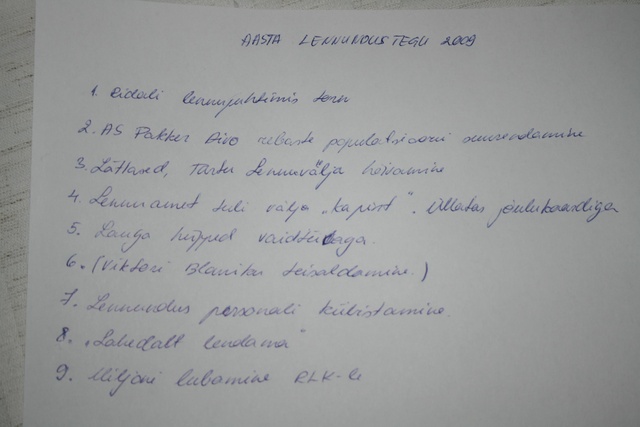 AASTA LENNUNDUSTEGU 2009
1. Ridali lennujuhtimis torn
2. AS Pakker Avio rebaste populatsiooni suurendamine
3. Lätlased, Tartu Lennuvälja heivamine
4. Lennuamet tuli välja "kapist". Üllatas jõulukaardiga
5. Lauga hüpped vaidtüübaga.
6. (Viktori Blaniku teisaldamine.)
7. Lennundus personali küüistamine.
8. "Lahedalt lendama"
9. Miljoni lubamine RLK-le